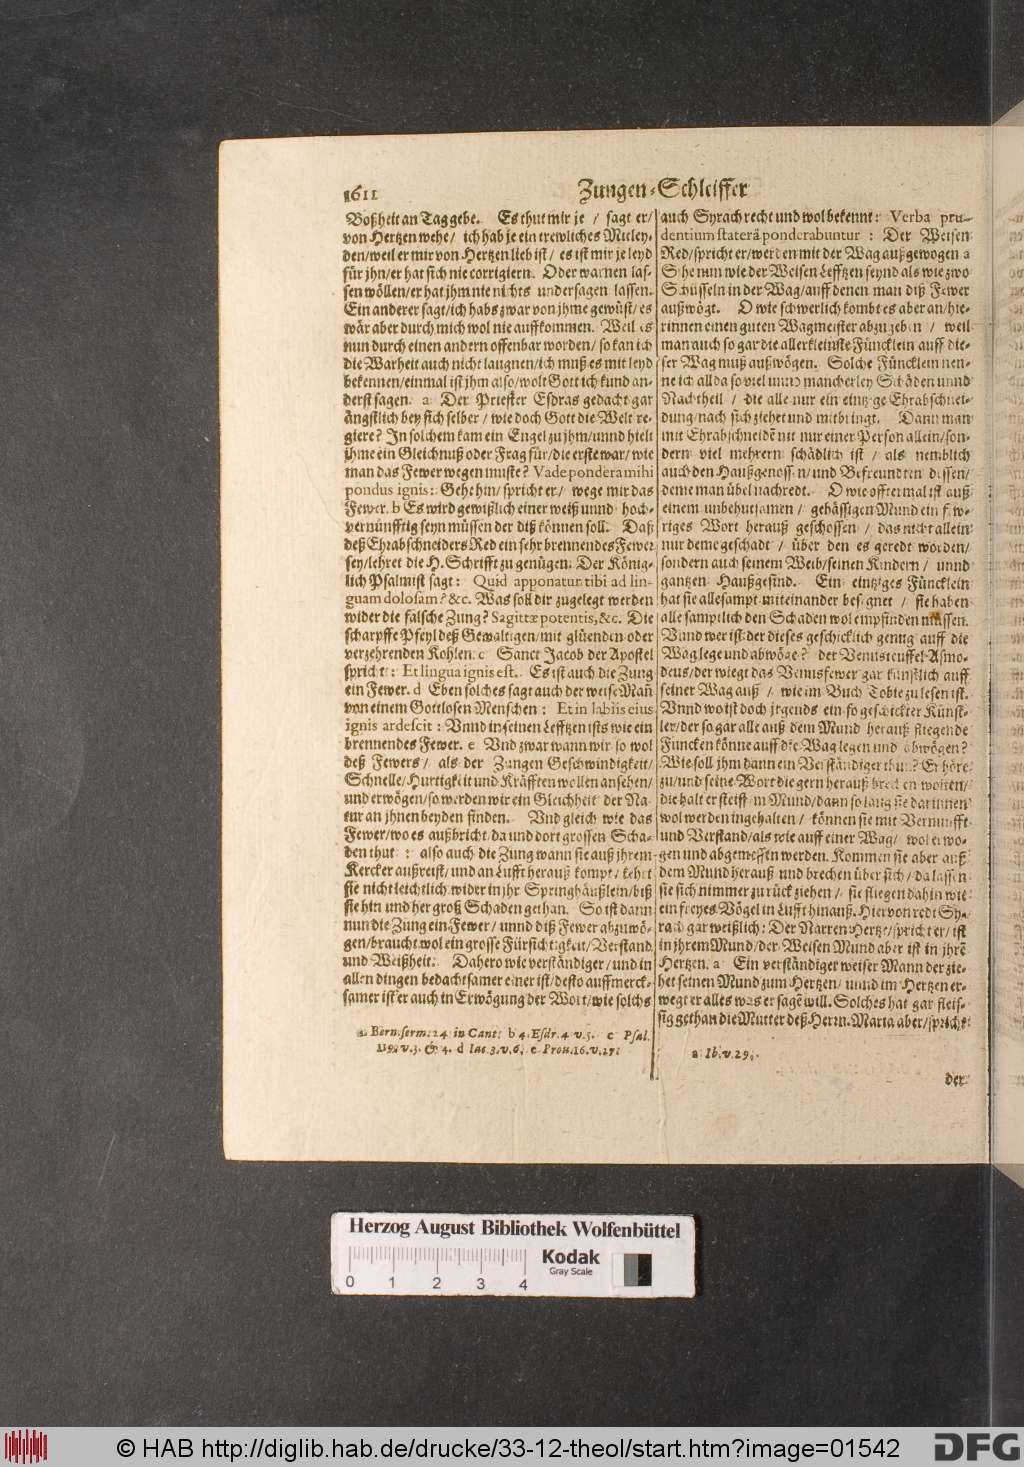 1611
Zungen-Schleiffer
Boßheit an Tag gebe. Es thut mir je / sagt er/
von Hertzen wehe/ ich hab je ein trewliches Mitley-
den/weil er mir von Hertzen lieb ist/ es ist mir je leyd
für jhn/er hat sich nie corrigiern. Oder warnen las-
sen wöllen/er hat jhm nie nichts undersagen lassen.
Ein anderer sagt/ich habs zwar von jhme gewüst/es
wär aber durch mich wol nie auffkommen. Weil es
nun durch einen andern offenbar worden/ so kan ich
die Warheit auch nicht laugnen/ich muß es mit leyd
bekennen/einmal ist jhm also/wolt Gott ich kund an-
derst sagen. a Der Priester Esdras gedacht gar
ängstlich bey sich selber / wie doch Gott die Welt re-
giere? In solchem kam ein Engel zu jhm/unnd hielt
jhme ein Gleichnuß oder Frag für/die erste war/ wie
man das Fewer wegen muste? Vade pondera mihi
pondus ignis: Gehe hin/ spricht er / wege mir das
Fewer. b Es wird gewißlich einer weiß unnd hoch-
vernünfftig seyn müssen der diß können soll. Daß
deß Ehrabschneiders Red ein sehr brennendes Fewer
sey/lehret die H. Schrifft zu genügen. Der König-
lich Psalmist sagt: Quid apponatur tibi ad lin-
guam dolosam? &c. Was soll dir zugelegt werden
wider die falsche Zung? Sagittæ potentis, &c. Die
scharpffe Pfeyl deß Gewaltigen/mit glüenden oder
verzehrenden Kohlen. c Sanct Jacob der Apostel
spricht: Et lingua ignis est. Es ist auch die Zung
ein Fewer. d Eben solches sagt auch der weise Mañ
von einem Gottlosen Menschen: Et in labiis eius
ignis ardescit: Vnnd in seinen Lefftzen ists wie ein
brennendes Fewer. e Vnd zwar wann wir so wol
deß Fewers/ als der Zungen Geschwindigkeit/
Schnelle/Hurtigkeit und Kräfften wollen ansehen/
und erwögen/so werden wir ein Gleichheit der Na-
tur an jhnen beyden finden. Vnd gleich wie das
Fewer/wo es außbricht/da und dort grossen Scha-
den thut : also auch die Zung wann sie auß jhrem
Kercker außreist/ und an Lufft herauß kompt/ kehrt
sie nicht leichtlich wider in jhr Springhäußlein/biß
sie hin und her groß Schaden gethan. So ist dann
nun die Zung ein Fewer/ unnd diß Fewer abzuwö-
gen/braucht wol ein grosse Fürsichtigkeit/Verstand
und Weißheit. Dahero wie verständiger/ und in
allen dingen bedachtsamer einer ist/desto auffmerck-
samer ist er auch in Erwögung der Wort/wie solchs
a Bern. serm. 24 in Cant: b 4. Esdr. 4 v. 5. c Psal.
119. v. 3. & 4. d Iac. 3. v. 6. e Prou. 16. v. 27.
auch Syrach recht und wol bekennt: Verba pru-
dentium staterâ ponderabuntur : Der Weisen
Red/spricht er/werden mit der Wag außgewogen a
Sihe nun wie der Weisen Lefftzen seynd als wie zwo
Schüsseln in der Wag/auff denen man diß Fewer
außwögt. O wie schwerlich kombt es aber an/hie-
rinnen einen guten Wagmeister abzugeben / weil
man auch so gar die allerkleinste Füncklein auff die-
ser Wag muß außwögen. Solche Füncklein nen-
ne ich allda so viel unnd mancherley Schäden unnd
Nachtheil / die alle nur ein eintzige Ehrabschnei-
dung/nach sich ziehet und mitbringt. Dann man
mit Ehrabschneidē nit nur einer Person allein/son-
dern viel mehrern schädlich ist / als nemblich
auch den Haußgenossen/und Befreundten dessen/
deme man übel nachredt. O wie offtermal ist auß
einem unbehutsamen / gehässigen Mund ein fewr-
riges Wort herauß geschossen / das nicht allein
nur deme geschadt / über den es geredt worden/
sondern auch seinem Weib/seinen Kindern / unnd
gantzen Haußgesind. Ein eintziges Füncklein
hat sie allesampt miteinander besegnet / sie haben
alle samptlich den Schaden wol empfinden müssen.
Vnnd wer ist der dieses geschicklich genug auff die
Wag lege und abwöge? der Venusteuffel Asmo-
deus/der wiegt das Venusfewer gar künstlich auff
seiner Wag auß / wie im Buch Tobie zu lesen ist.
Vnnd wo ist doch jrgends ein so geschickter Künst-
ler/der so gar alle auß dem Mund herauß fliegende
Funcken könne auff die Wag legen und abwögen?
Wie soll jhm dann ein Verständiger thun? Er höre
zu/und seine Wort die gern herauß brechen wolten/
die halt er steiff im Mund/dann so lang sie darinnen
wol werden ingehalten / können sie mit Vernunfft
und Verstand/als wie auff einer Wag/ wol erwo-
gen und abgemessen werden. Kommen sie aber auß
dem Mund herauß und brechen über sich/ da lassen
sie sich nimmer zurück ziehen/ sie fliegen dahin wie
ein freyes Vögel in Lufft hinauß. Hiervon redt Sy-
rach gar weißlich: Der Narren Hertze/spricht er/ ist
in jhrem Mund/der Weisen Mund aber ist in jhrē
Hertzen. a Ein verständiger weiser Mann der zie-
het seinen Mund zum Hertzen/ unnd im Hertzen er-
wegt er alles was er sagē will. Solches hat gar fleis-
sig gethan die Mutter deß Herrn. Maria aber/spricht
a Ib. v. 29.
der
Herzog August Bibliothek Wolfenbüttel
Kodak
Gray Scale
0 1 2 3 4
© HAB http://diglib.hab.de/drucke/33-12-theol/start.htm?image=01542
DFG